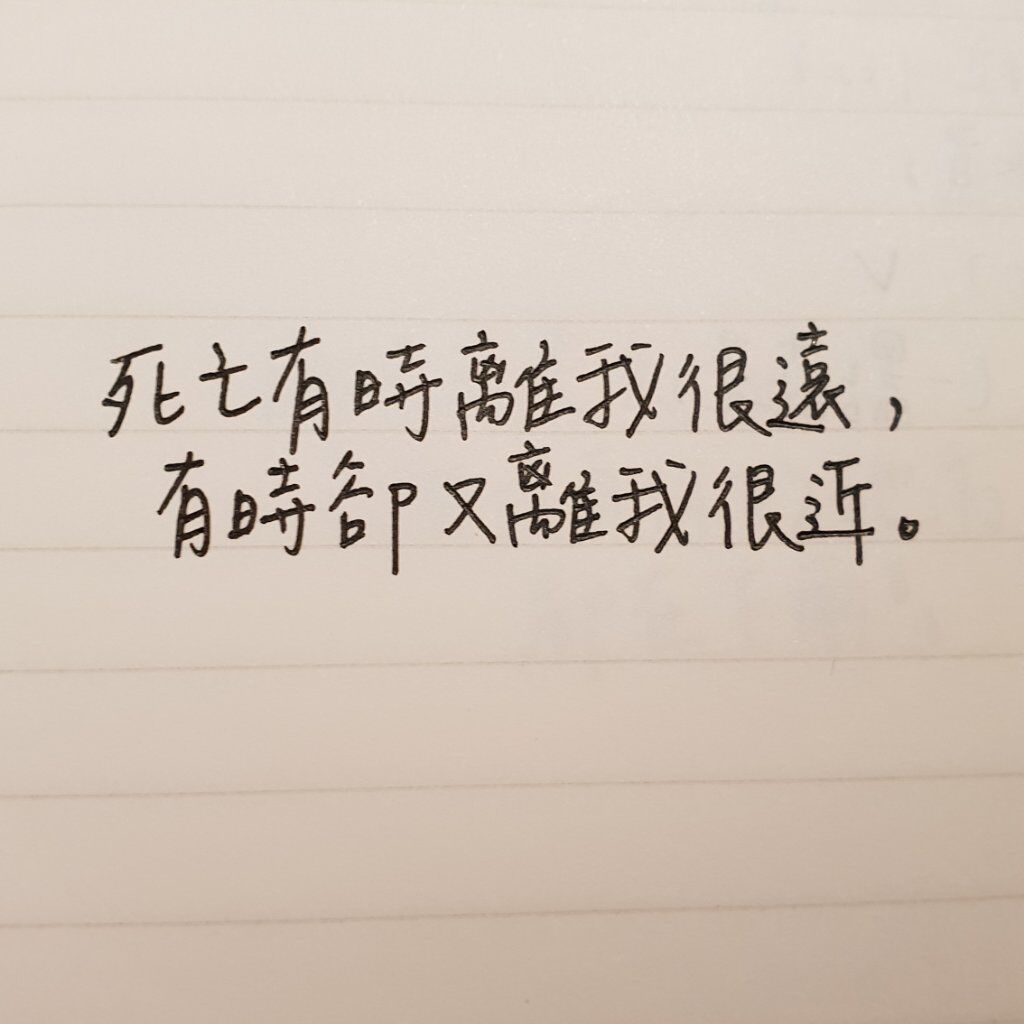 死亡有時離我很遠，
有時卻又離我很近。